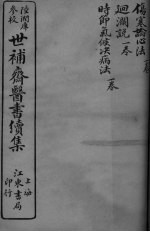 傷寒論心法一卷
迴瀾說一卷
時節氣候決病法一卷
陸潤庠
參校
世補齋醫書續集
上海
江東書局
印行